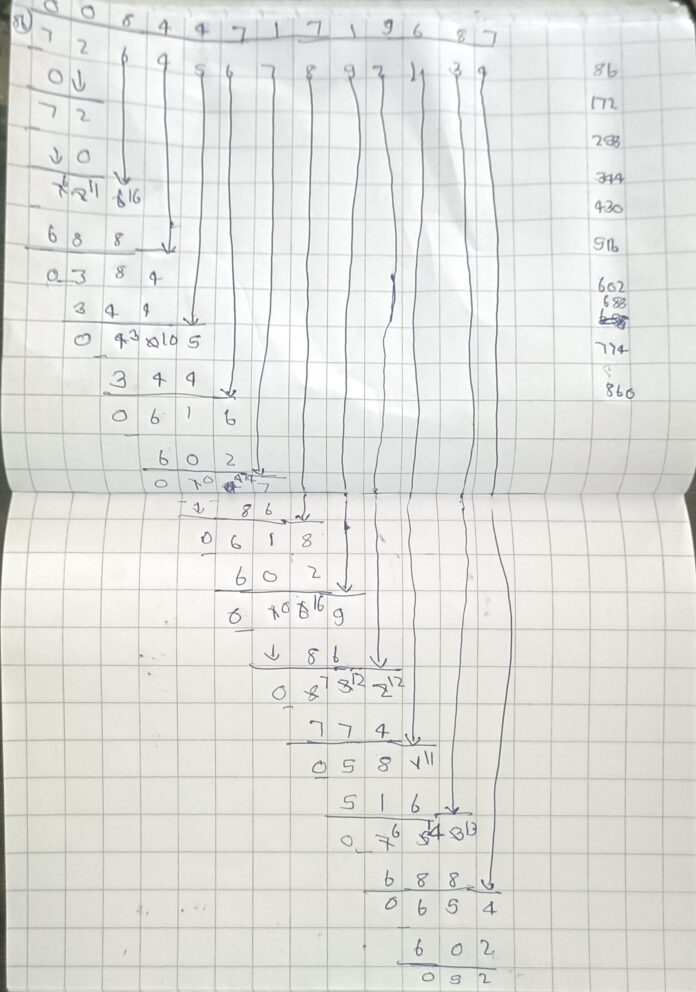 0 0 8 4 4 7 1 7 1 9 6 8 7
86) 7 2 6 4 5 6 7 8 9 2 1 3 4 86
0
7 2 172
0 258
7 6 2 11 6 16 344
6 8 8 430
0 3 8 4 516
3 4 4 602
0 4 3 0 10 5 688
3 4 4 774
0 6 1 6 860
6 0 2
0 1 0 4 14 7
8 6
0 6 1 8
6 0 2
0 1 0 6 16 9
8 6
0 8 7 3 12 2 12
7 7 4
0 5 8 1 11
5 1 6
0 7 6 5 14 3 13
6 8 8
0 6 5 4
6 0 2
0 5 2